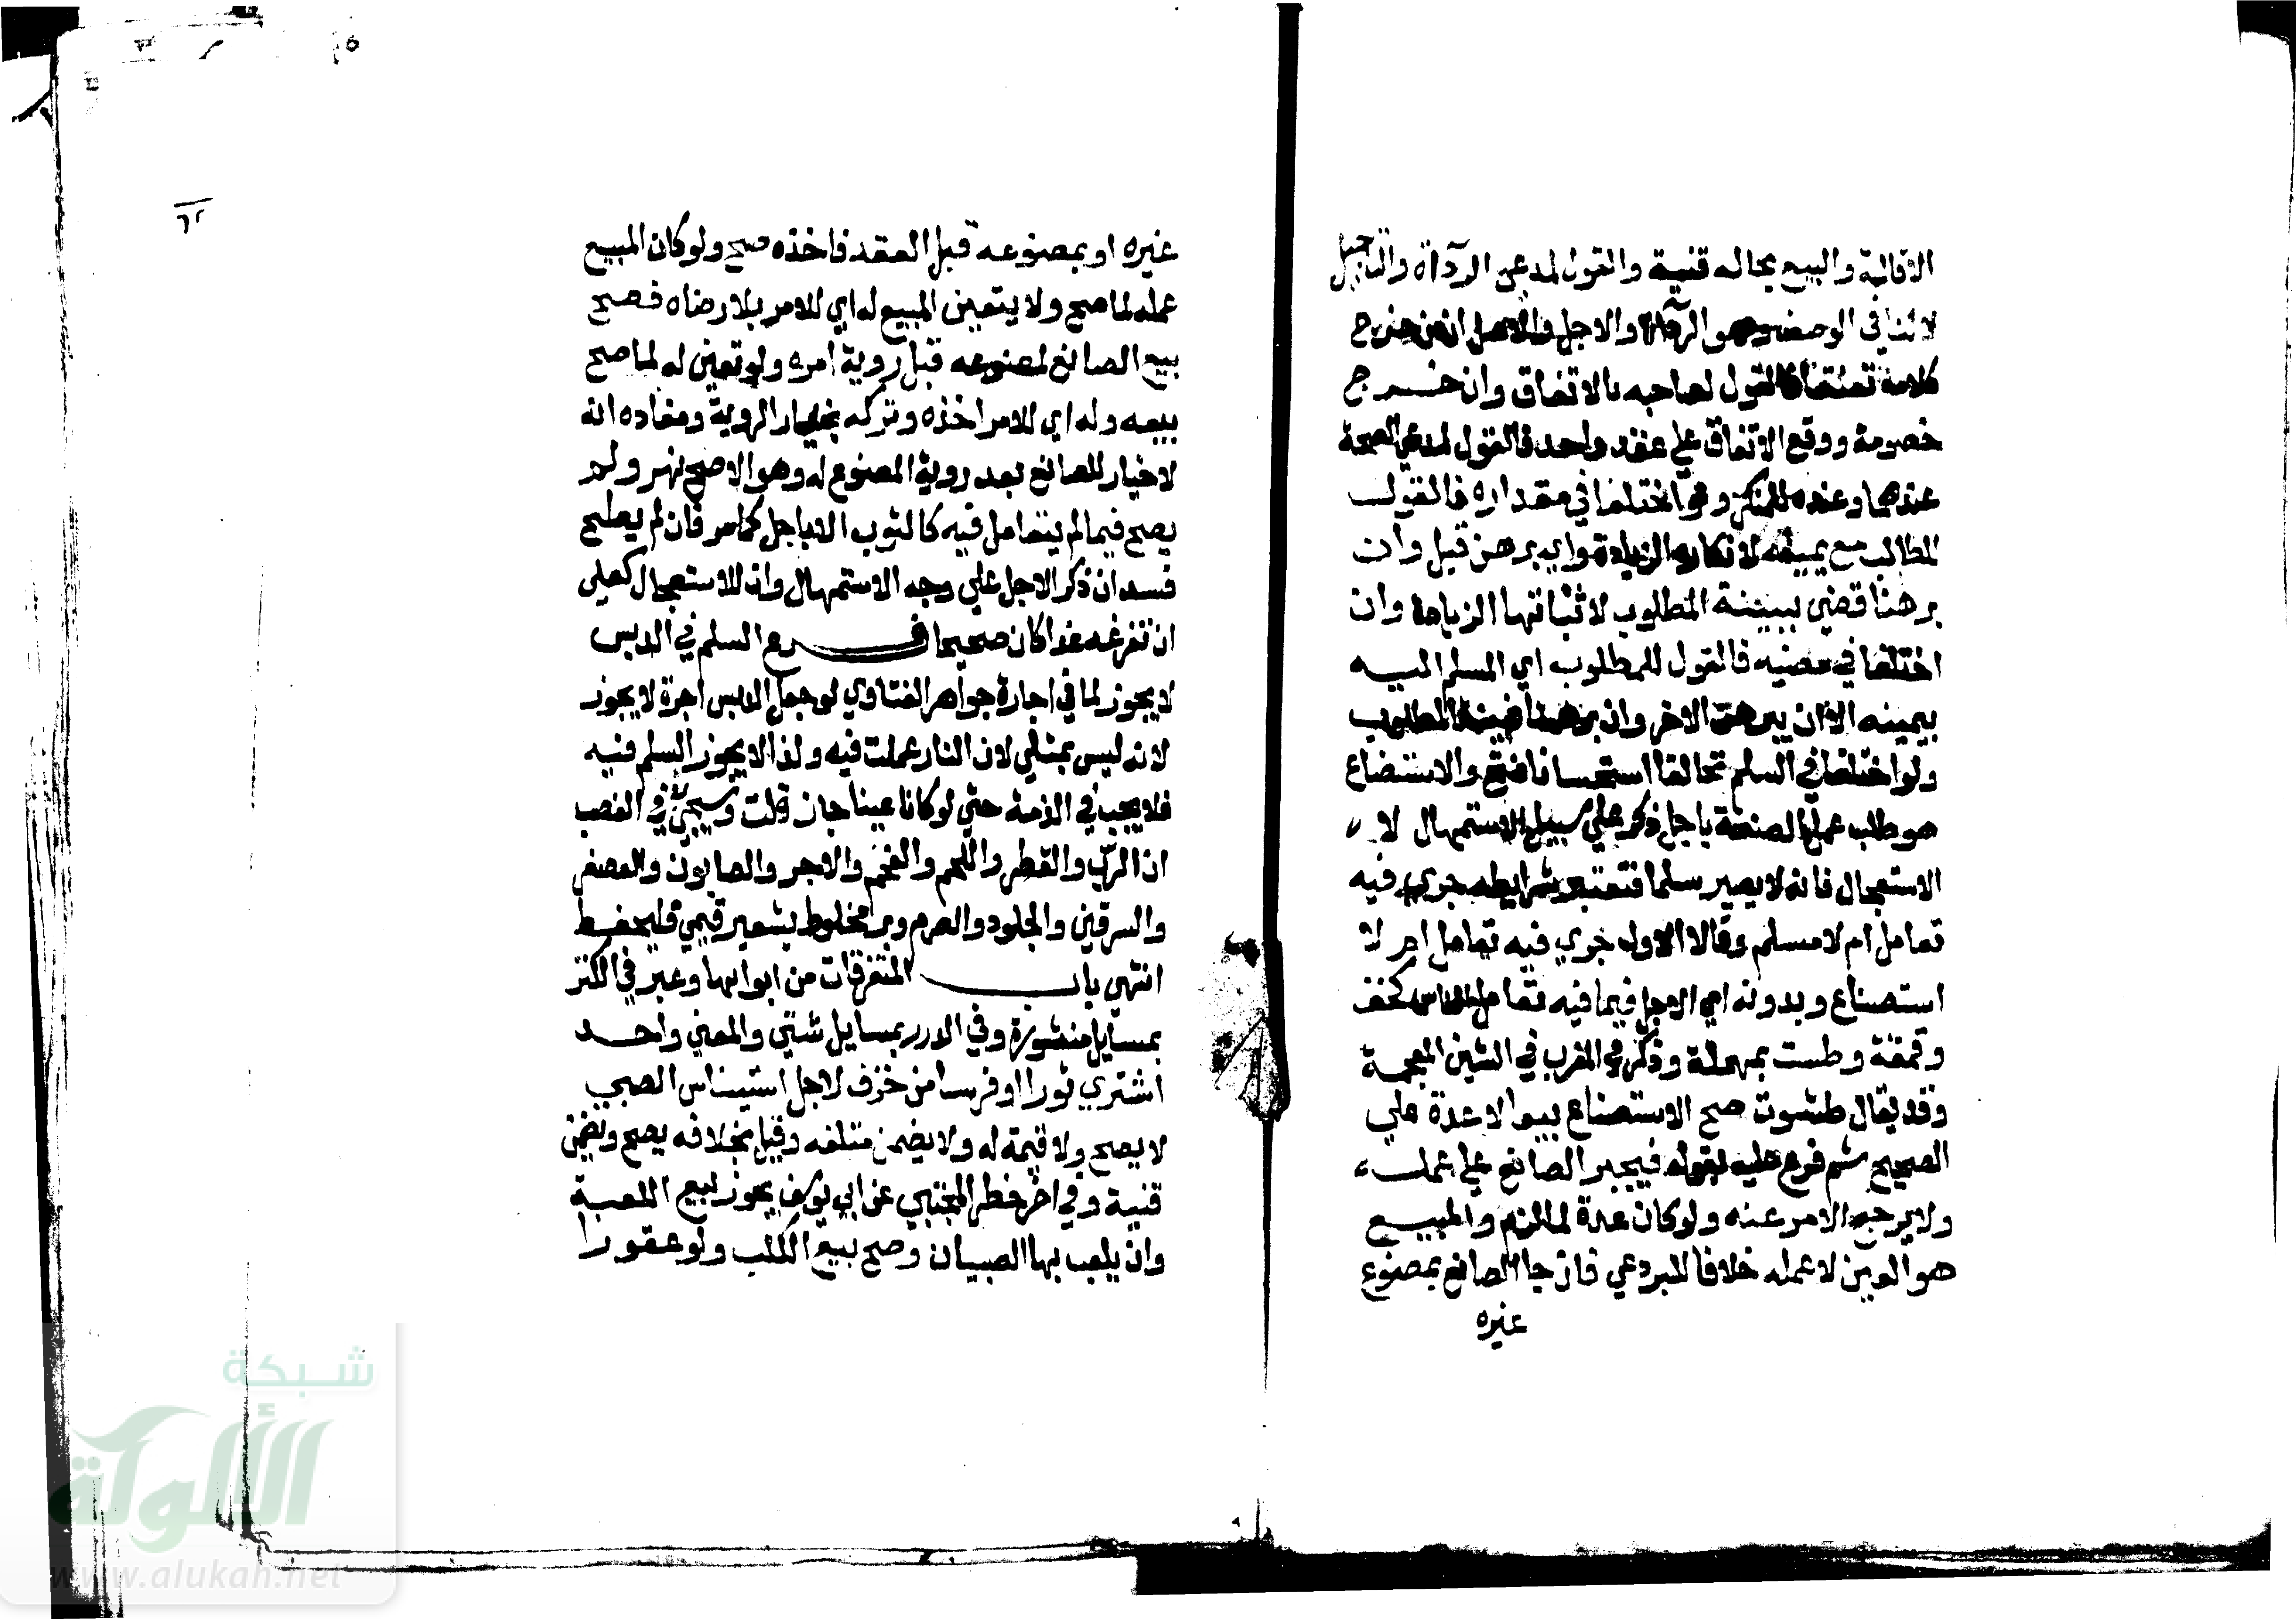 الاقالة والبيع بحاله قنية والقول لمدعي الرداة والتاجيل
لا لنافي الوصف وهو الرداة والاجل والاصل ان من خرج
كلامه تعنتا فالقول لصاحبه بالاتفاق وان خرج
خصومة ووقع الاتفاق علي عقد واحد فالقول لمدعي الصحة
عندهما وعنده للمنكر ولو اختلفا في مقداره فالقول
للطالب مع يمينه لانكاره الزيادة واي برهن قبل وان
برهنا قضي ببينة المطلوب لاثباتها الزيادة وان
اختلفا في مضيه فالقول للمطلوب اي المسلم اليه
بيمينه الا ان يبرهن الاخر وان برهنا فبينة المطلوب
ولو اختلفا في السلم تحالفا استحسانا فتح والاستصناع
هو طلب عمل الصنعة باجل ذكر علي سبيل الاستمهال لا
الاستعجال فانه لا يصير سلما فتعتبر شرايطه جري فيه
تعامل ام لا مسلم وقالا الاول جري فيه تعامل ام لا
استصناع وبدونه اي الاجل فيما فيه تعامل الناس كخف
وقمقمة وطست بمهملة وذكر في المغرب في الشين المعجمة
وقد يقال طشوت صح الاستصناع بيعا لا عدة علي
الصحيح ثم فرع عليه بقوله فيجبر الصانع علي عمله
ولا يرجع الامر عنه ولو كان عدة لما لزم والمبيع
هو العين لا عمله خلافا للبردعي فان جا الصانع بمصنوع
غيره
٦٢
غيره او بمصنوعه قبل العقد فاخذه صح ولو كان المبيع
عمله لما صح ولا يتعين المبيع له اي للامر بلا رضاه فصح
بيع الصانع لمصنوعه قبل روية امره ولو تعين له لما صح
بيعه وله اي للامر اخذه وتركه بخيار الروية ومفاده انه
لا خيار للصانع بعد روية المصنوع له وهو الاصح نهر ولم
يصح فيما لم يتعامل فيه كالثوب الا باجل كما مر فان لم يصح
فسد ان ذكر الاجل علي وجه الاستمهال وان للاستعجال كعلي
ان تفرغه غدا كان صحيحا فرع السلم في الدبس
لا يجوز لما في اجارة جواهر الفتاوي لو جعل الدبس اجرة لا يجوز
لانه ليس بمثلي لان النار عملت فيه ولذا لا يجوز السلم فيه
فلا يجب في الذمة حتي لو كانا عينا جاز قلت وسيجي في الغصب
ان الرب والقطر واللحم والفحم والاجر والصابون والعصفر
والسرقين والجلود والصرم وبر مخلوط بشعير قيمي فليحفظ
انتهي باب المتفرقات من ابوابها وعبر في الكنز
بمسايل منثورة وفي الدرر بمسايل شتي والمعني واحد
اشتري ثورا او فرسا من خزف لاجل استيناس الصبي
لا يصح ولا قيمة له ولا يضمن متلفه وقيل بخلافه يصح ويضمن
قنية وفي اخر حظر المجتبي عن ابي يوسف يجوز بيع اللعبة
وان يلعب بها الصبيان وصح بيع الكلب ولو عقورا
شبكة
الألوكة
www.alukah.net